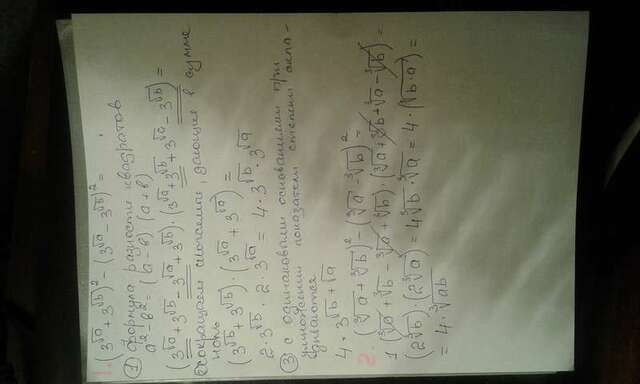 1. (3^√a + 3^√b)² - (3^√a - 3^√b)² =
① формула разности квадратов
a² - b² = (a - b) · (a + b)
(3^√a + 3^√b - 3^√a + 3^√b) · (3^√a + 3^√b + 3^√a - 3^√b) =
сокращаем слогаемые, дающие в сумме
ноль
(3^√b + 3^√b) · (3^√a + 3^√a) =
2 · 3^√b · 2 · 3^√a = 4 · 3^√b · 3^√a
③ с одинаковыми основаниями при
умножении показатели степени скла-
дываются
4 · 3^√b + √a
2. (∛a + ∛b)² - (∛a - ∛b)² =
1 (∛a + ∛b - ∛a + ∛b) · (∛a + ∛b + ∛a - ∛b) =
(2∛b) · (2∛a) = 4∛b · ∛a = 4 · (∛b · a) =
= 4 · ∛ab